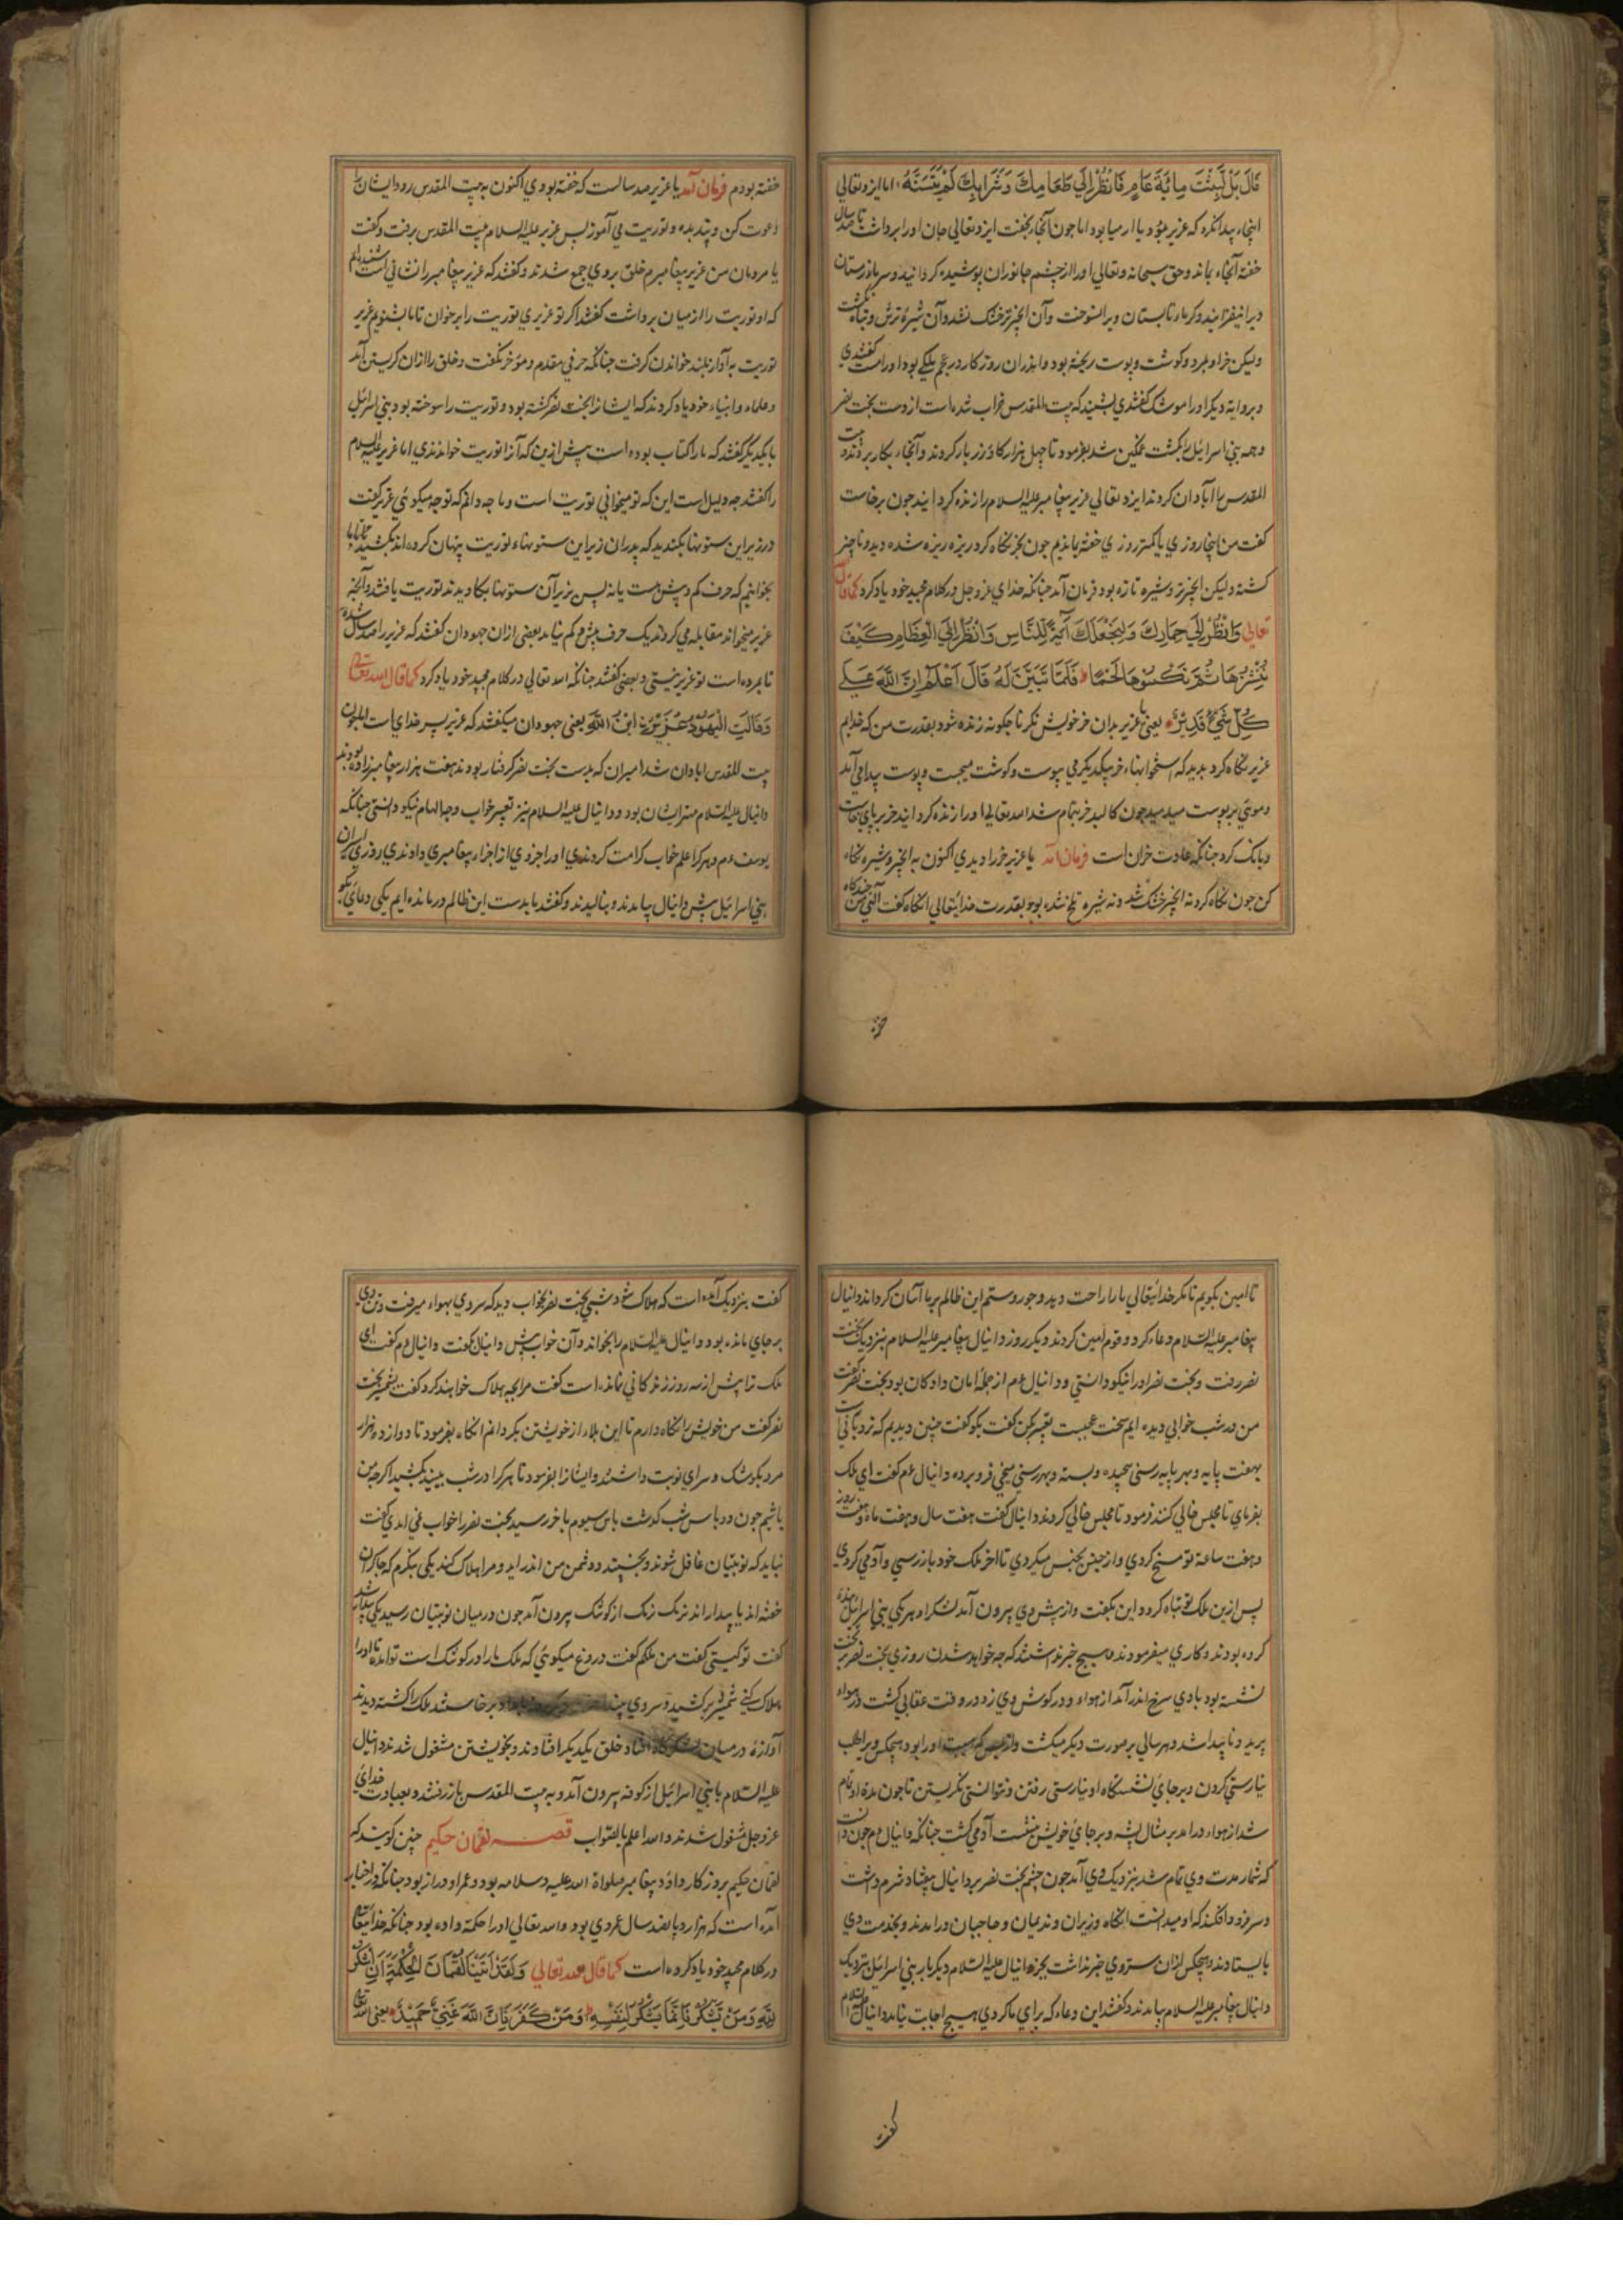 قَالَ بَلْ لَبِثْتَ مِائَةَ عَامٍ فَانْظُرْ إِلَى طَعَامِكَ وَشَرَابِكَ لَمْ يَتَسَنَّهْ اما ایزد تعالی
اینجا پیدا نکرد که عزیر بود یا ارمیا بود اما چون آنجا بخفت ایزد تعالی جان او را برداشت تا صد سال
خفته آنجا بماند و حق سبحانه و تعالی او را از چشم جانوران پوشیده گردانید و سرما زمستان
ویرا نیفزایند و گرما تابستان ویرا نسوخت و آن انجیر تر خشک نشد و آن شیره ترش و تباه نگشت
ولیکن خر او بمرد و گوشت و پوست ریخته بود و اندران روزگار در عجم ملکی بود او را گفتندی
و بروایة دیگر او را موشک گفتندی بشنید که بیت المقدس خراب شده است از دست بخت نصر
و همه بنی اسرائیل را بکشت غمگین شد بفرمود تا چهل هزار گاو زر بار کردند و آنجا بکار بردند و بیت
المقدس را آبادان کردند ایزد تعالی عزیر پیغامبر علیه السلام را زنده گردانید چون برخاست
گفت من اینجا روزی یا کمتر روزی خفته ماندیم چون بخر نگاه کرد ریزه ریزه شده دید و ناچیز
گشته ولیکن انجیر تر و شیره تازه بود فرمان آمد چنانکه خدای عز و جل در کلام مجید خود یاد کرد کما قال
تعالی وَانْظُرْ إِلَى حِمَارِكَ وَلِنَجْعَلَكَ آيَةً لِلنَّاسِ وَانْظُرْ إِلَى الْعِظَامِ كَيْفَ
نُنْشِزُهَا ثُمَّ نَكْسُوهَا لَحْمًا فَلَمَّا تَبَيَّنَ لَهُ قَالَ أَعْلَمُ أَنَّ اللَّهَ عَلَى
كُلِّ شَيْءٍ قَدِيرٌ یعنی یا عزیر بدان خر خویش نگر تا چگونه زنده شود بقدرت من که خدایم
عزیر نگاه کرد بدید که استخوانها خر بیکدیگر می پیوست و گوشت میجست و پوست پیدا می آمد
و موی بر پوست میدمید چون کالبد خر تمام شد الله تعالی او را زنده گردانید خر بر پای خاست
و بانگ کرد چنانکه عادت خران است فرمان آمد یا عزیر خر را دیدی اکنون به انجیر و شیره نگاه
کن چون نگاه کرد نه انجیر خشک شده و نه شیره تلخ شده بود بقدرت خدایتعالی آنگاه گفت الهی من چندگاه
خفته
خفته بودم فرمان آمد یا عزیر صد سالست که خفته بودی اکنون به بیت المقدس رو و ایشان را
دعوت کن و پند بده و توریت می آموز پس عزیر علیه السلام به بیت المقدس برفت و گفت
یا مردمان من عزیر پیغامبرم خلق بر وی جمع شدند و گفتند که عزیر پیغامبر را نشانی است شنیده ایم
که او توریت را از میان برداشت گفتند اگر تو عزیری توریت را برخوان تا ما بشنویم عزیر
توریت به آواز بلند خواندن گرفت چنانکه حرفی مقدم و مؤخر نگفت و خلق را ازان گریستن آمد
و علماء و انبیاء خود یاد کردند که ایشانرا بخت نصر کشته بود و توریت را سوخته بود بنی اسرائیل
با یکدیگر گفتند که ما را کتاب بوده است پیش ازین که آنرا توریت خواندندی اما عزیر علیه السلام
را گفتند چه دلیل است این که تو میخوانی توریت است و ما چه دانم که تو چه میگوئی عزیر گفت
در زیر این ستونها بکندید که پدران زیر این ستونها توریت پنهان کرده اند بکشید تا ما
بخوانیم که حرف کم و بیش هست یا نه پس بزیر آن ستونها بکاویدند توریت یافتند و آنچه
عزیر میخواند مقابله می کردند یک حرف بیش و کم نیامد بعضی ازان جهودان گفتند که عزیر را صد سال شده
تا مرده است تو عزیر نیستی و بعضی گفتند چنانکه الله تعالی در کلام مجید خود یاد کرد کما قال الله تعالی
وَقَالَتِ الْيَهُودُ عُزَيْرٌ ابْنُ اللَّهِ یعنی جهودان میگفتند که عزیر پسر خدای است اما چون
بیت المقدس ابادان شد امیران که بدست بخت نصر گرفتار بودند هفت هزار پیغامبر زاده بودند
دانیال علیه السلام مهتر ایشان بود و دانیال علیه السلام نیز تعبیر خواب و جا الهام نیکو دانستی چنانکه
یوسف ء م و هر کرا علم خواب کرامت کردندی او را جزوی از اجزاء پیغامبری دادندی روزی اسیران
بنی اسرائیل پیش دانیال بیامدند و بنالیدند و گفتند ما بدست این ظالم درمانده ایم یکی دعای بکو
تا امین بگویم تا مگر خدایتعالی ما را راحت دهد و جور و ستم این ظالم بر ما آسان گرداند دانیال
پیغامبر علیه السلام دعا کرد و قوم امین کردند دیگر روز دانیال پیغامبر علیه السلام بنزدیک بخت
نصر رفت و بخت نصر او را نیکو داشتی و دانیال ء م از جمله امان دادگان بود بخت نصر گفت
من در شب خوابی دیده ایم سخت عجبست تعبیر بکن گفت بگو گفت چنین دیدیم که نردبانی است
بهفت پایه و بهر پایه رسنی پیچیده و بسته و بهر رسنی میخی فرو برده دانیال ء م گفت ای ملک
بفرمای تا مجلس خالی کنند فرمود تا مجلس خالی کردند دانیال گفت هفت سال و هفت ماه و هفت روز
و هفت ساعة تو مسخ گردی و از جنس بجنس میگردی تا اخر ملک خود باز رسی و آدمی گردی
پس ازین ملک تو تباه گردد این بگفت و از پیش وی بیرون آمد لشکر او هر یکی بنی اسرائیل بنده
کرده بودند و کاری میفرمودند و هیچ خبر نداشتند که چه خواهد شدن روزی بخت نصر بر تخت
نشسته بود بادی سرخ اندر آمد از هواء و در گوش وی زد در وقت عقابی گشت در هواء
پرید و ناپیدا شد و هر سالی بر صورت دیگر میگشت و از بس که هیبت او را بود هیچکس ویرا طلب
نیارستی کردن و بر جای نشستگاه او نیارستی رفتن و نتوانستی نگریستن تا چون مدة او تمام
شد از هواء درامد بر مثال پشه و بر جای خویش بنشست آدمی گشت چنانکه دانیال ء م چون دانست
که شمار مدت وی تمام شد بنزدیک وی آمد چون چشم بخت نصر بر دانیال بیفتاد شرم داشت
و سر فرود افکند که او میدانست انگاه وزیران و ندیمان و حاجبان درامدند و بخدمت وی
بایستادند و هیچکس ازان ستر وی خبر نداشت بجز دانیال علیه السلام دیگر بار بنی اسرائیل بنزدیک
دانیال پیغامبر علیه السلام بیامدند و گفتند این دعاء که برای ما کردی هیچ اجابت نیامد دانیال علیه السلام
گفت
گفت بنزدیک آمده است که هلاک شود شبی بخت نصر بخواب دید که سر وی بهواء میرفت و تن وی
بر جای مانده بود دانیال علیه السلام را بخواند و آن خواب پیش دانیال گفت دانیال ء م گفت ای
ملک ترا پیش از سه روز زندگانی نمانده است گفت مرا بچه هلاک خواهند کرد گفت بشمشیر بخت
نصر گفت من خویش را نگاه دارم تا این بلاء از خویشتن بگردانم انگاه بفرمود تا دوازده هزار
مرد بکوشک و سرای نوبت داشتند و ایشانرا بفرمود تا هر کرا در شب بینید بکشید اگر چه من
باشم چون دو پاس شب گذشت پاس سیوم باخر رسید بخت نصر را خواب نمی امدی گفت
نباید که نوبتیان غافل شوند و بخسپند و دشمن من اندر اید و مرا هلاک کند یکی بنگرم که چاکران
خفته اند یا بیدار اند نرمک نرمک از کوشک بیرون آمد چون در میان نوبتیان رسید یکی بیدار شد
گفت تو کیستی گفت من ملکم گفت دروغ میگوئی که ملک ما را در کوشک است تو امده تا او را
هلاک کنی شمشیر برکشید و سر وی بینداخت برخاستند ملک را کشته دیدند
آوازه در میان لشکرگاه افتاد خلق یکدیگر افتادند و بخویشتن مشغول شدند دانیال
علیه السلام با بنی اسرائیل از کوفه بیرون آمد و به بیت المقدس باز رفتند و بعبادت خدای
عز و جل مشغول شدند والله اعلم بالصواب قصه لقمان حکیم چنین گویند که
لقمان حکیم بروزگار داؤد پیغامبر صلواة الله علیه و سلامه بود و عمر او دراز بود چنانکه در اخبار
آمده است که هزار و پانصد سال عمر وی بود والله تعالی او را حکمة داده بود چنانکه خدایتعالی
در کلام مجید خود یاد کرده است کما قال الله تعالی وَلَقَدْ آتَيْنَا لُقْمَانَ الْحِكْمَةَ أَنِ اشْكُرْ
لِلَّهِ وَمَنْ يَشْكُرْ فَإِنَّمَا يَشْكُرُ لِنَفْسِهِ وَمَنْ كَفَرَ فَإِنَّ اللَّهَ غَنِيٌّ حَمِيدٌ یعنی الله تعالی